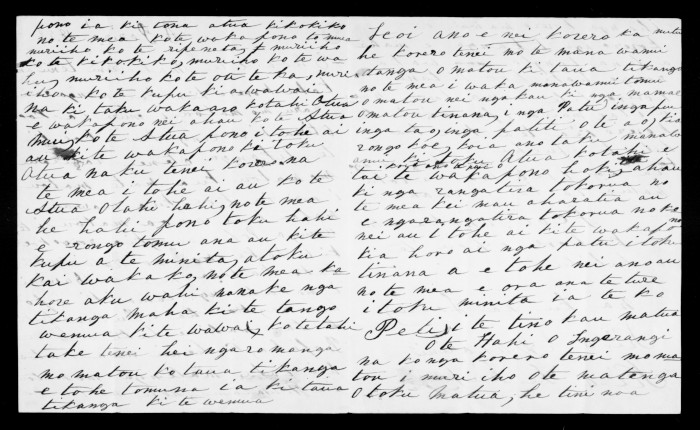 pono ia ki tona atua kikokiko
no te mea kote waka pono tomua
muriiho ko te ripeneta, muriiho
ko te kikokiko, muriiho ko te wa
muriiho kote oti te ka, muri
i kote kupu ki a
na ki taku wakaaro kotahi Atua
e wakapono nei ahau kote Atua
kote Atua pono i tohe ai
au kite wakapono ki toku
Atua naku tenei korero na
te mea i tohe ai au ko te
Atua Otahi hahi, no te mea
he hahi pono toku hahi
e rongo tomu ana au kite
kupu a te minita, a toku
kai wakako, no te mea ka
hore aku wahi manake nga
tikanga maha ki te tango
wenua kite wawai, kotetahi
take tenei hei ngaromanga
mo matou ko taua tikanga
e tohe tomuna ia ki taua
tikanga ki te wenua
Heoi ano e nei korero ka mutu
he korero tenei mo te mana wanui
tanga o matou ki taua tikanga
no te mea i waka manawanui tonu
o matou nei nga kau ki nga mamae
o matou tinana, i nga Patu i nga pu
i nga tao, i nga patiti o te
rongo koe, koia ano taku manawa
nui ki toku Atua kotahi e
tae te waka pono hoki, ahau
ki nga rangatira tokorua no
te mea kei mau aharatia au
e nga rangatira tokorua no
nei au i tohe ai kite wakapono
kia horo ai nga patu i toku
tinana a e tohe nei ano au
no te mea e ora ana te ture
i toku minita ia te ko
Peti, i te tino kau matua
Ote Hahi O Ingarangi
na ka nga korero tenei mo ma
tou i muri iho Ote matenga
Otoku matua, he tini noa